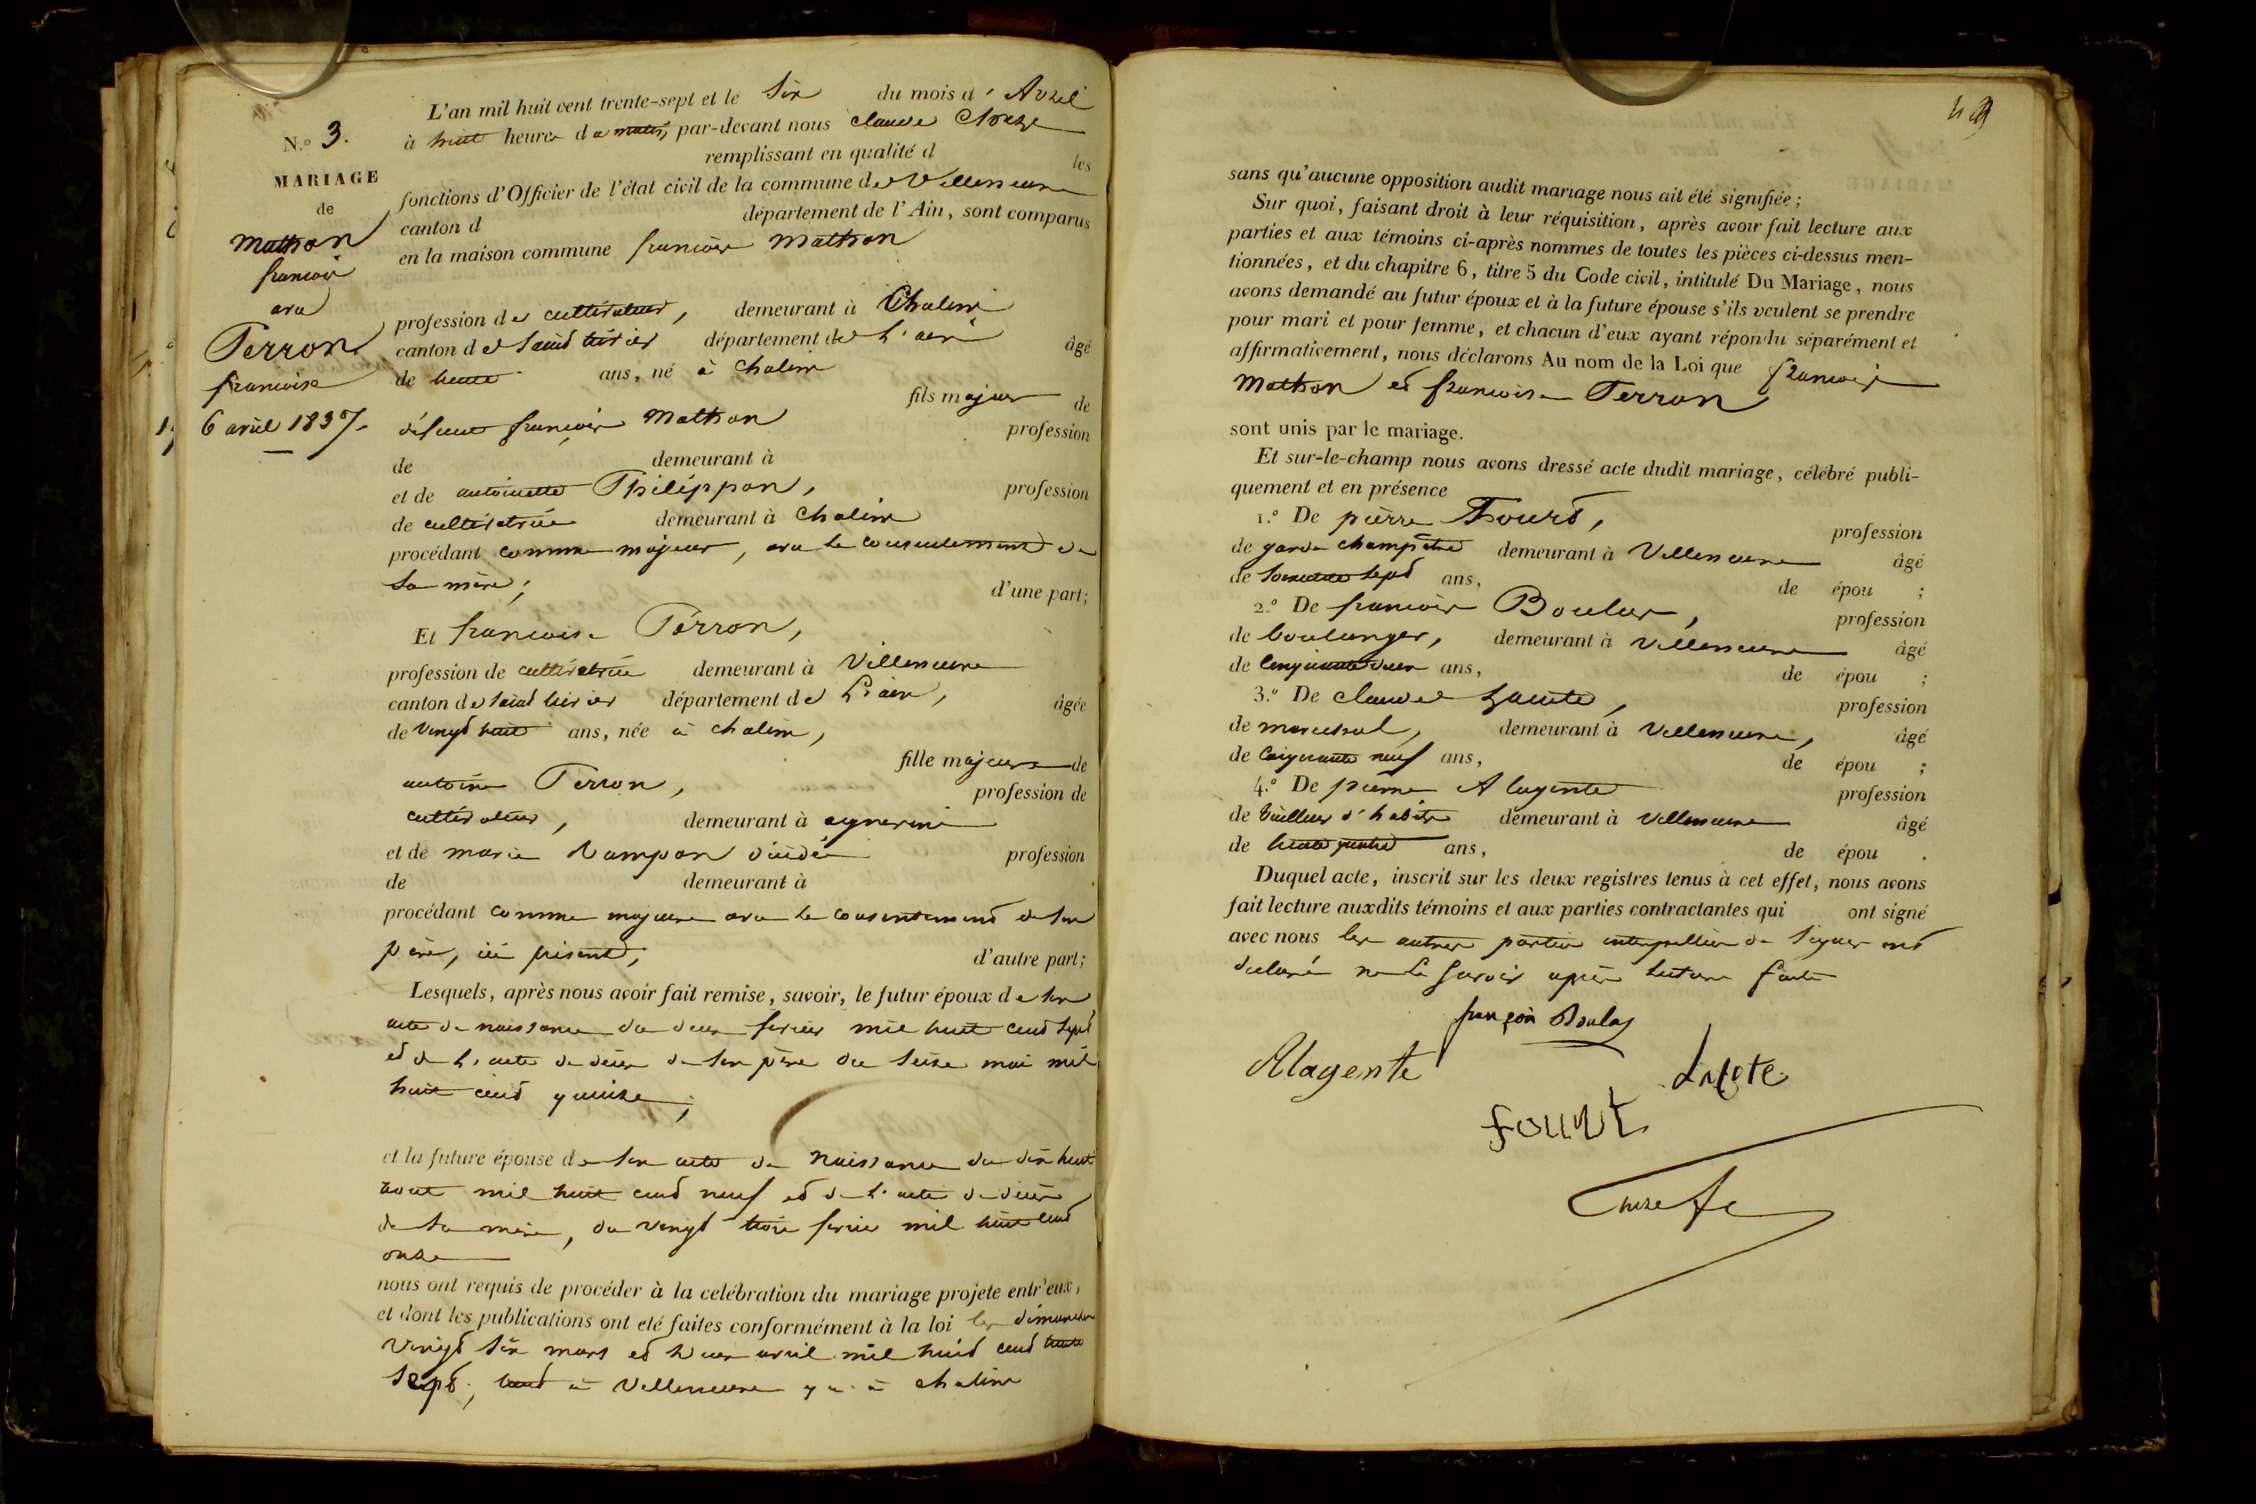 N.º 3.
MARIAGE
de
Mathon
francois
avec
Perron
francoise
6 avril 1837.
L'an mil huit cent trente-sept et le Six du mois d' Avril
à huit heures du matin, par-devant nous claude
remplissant en qualité d les
fonctions d'Officier de l'état civil de la commune de Villeneuve
canton d département de l'Ain, sont comparus
en la maison commune francois Mathon
profession de cultivateur, demeurant à Chaleins
canton de Saint trivier département de L'ain âgé
de trente ans, né à Chaleins
fils majeur de
défunt françois Mathon profession
de demeurant à
et de antoinette Philippon, profession
de cultivatrice demeurant à Chaleins
procédant comme majeur, avec le consentement de
Sa mère; d'une part;
Et francoise Perron,
profession de cultivatrice demeurant à Villeneuve
canton de Saint trivier département de L'ain, âgée
de vingt huit ans, née à chaleins,
fille majeure de
antoine Perron, profession de
cultivateur, demeurant à
et de marie Rampon décédée profession
de demeurant à
procédant comme majeure avec le consentement de son
père, ici présent, d'autre part;
Lesquels, après nous avoir fait remise, savoir, le futur époux de son
acte de naissance du deux fevrier mil huit cent Sept
et de L'acte de décès de Son père du Seize mai mil
huit cent quinze;
et la future épouse de son acte de Naissance du dix huit
aout mil huit cent neuf et de L'acte de décès
de Sa mère, du vingt trois fevrier mil huit cent
onze
nous ont requis de procéder à la celébration du mariage projete entr'eux,
et dont les publications ont eté faites conformément à la loi les dimanches
Vingt Six mars et deux avril mil huit cent trente
Sept, tant à Villeneuve qu'à chaleins
49
sans qu'aucune opposition audit mariage nous ait été signifiée;
Sur quoi, faisant droit à leur réquisition, après avoir fait lecture aux
parties et aux témoins ci-après nommes de toutes les pièces ci-dessus men-
tionnées, et du chapitre 6, titre 5 du Code civil, intitulé Du Mariage, nous
avons demandé au futur époux et à la future épouse s'ils veulent se prendre
pour mari et pour femme, et chacun d'eux ayant répondu séparément et
affirmativement, nous déclarons Au nom de la Loi que francois
Mathon et francoise Perron
sont unis par le mariage.
Et sur-le-champ nous avons dressé acte dudit mariage, célébré publi-
quement et en présence
1.º De pierre Fourt, profession
de garde champêtre demeurant à Villeneuve âgé
de Soixante Sept ans, de épou ;
2.º De francois Boulas, profession
de boulanger, demeurant à Villeneuve âgé
de Cinquante deux ans, de épou ;
3.º De claude profession
de marechal, demeurant à Villeneuve, âgé
de Cinquante neuf ans, de épou ;
4.º De pierre Alagente profession
de tailleur d'habits demeurant à Villeneuve âgé
de trente quatre ans, de épou .
Duquel acte, inscrit sur les deux registres tenus à cet effet, nous avons
fait lecture auxdits témoins et aux parties contractantes qui ont signé
avec nous les autres parties interpellées de Signer ont
declaré ne le Savoir après lecture faite
françois Boulas
Alagente
fourt